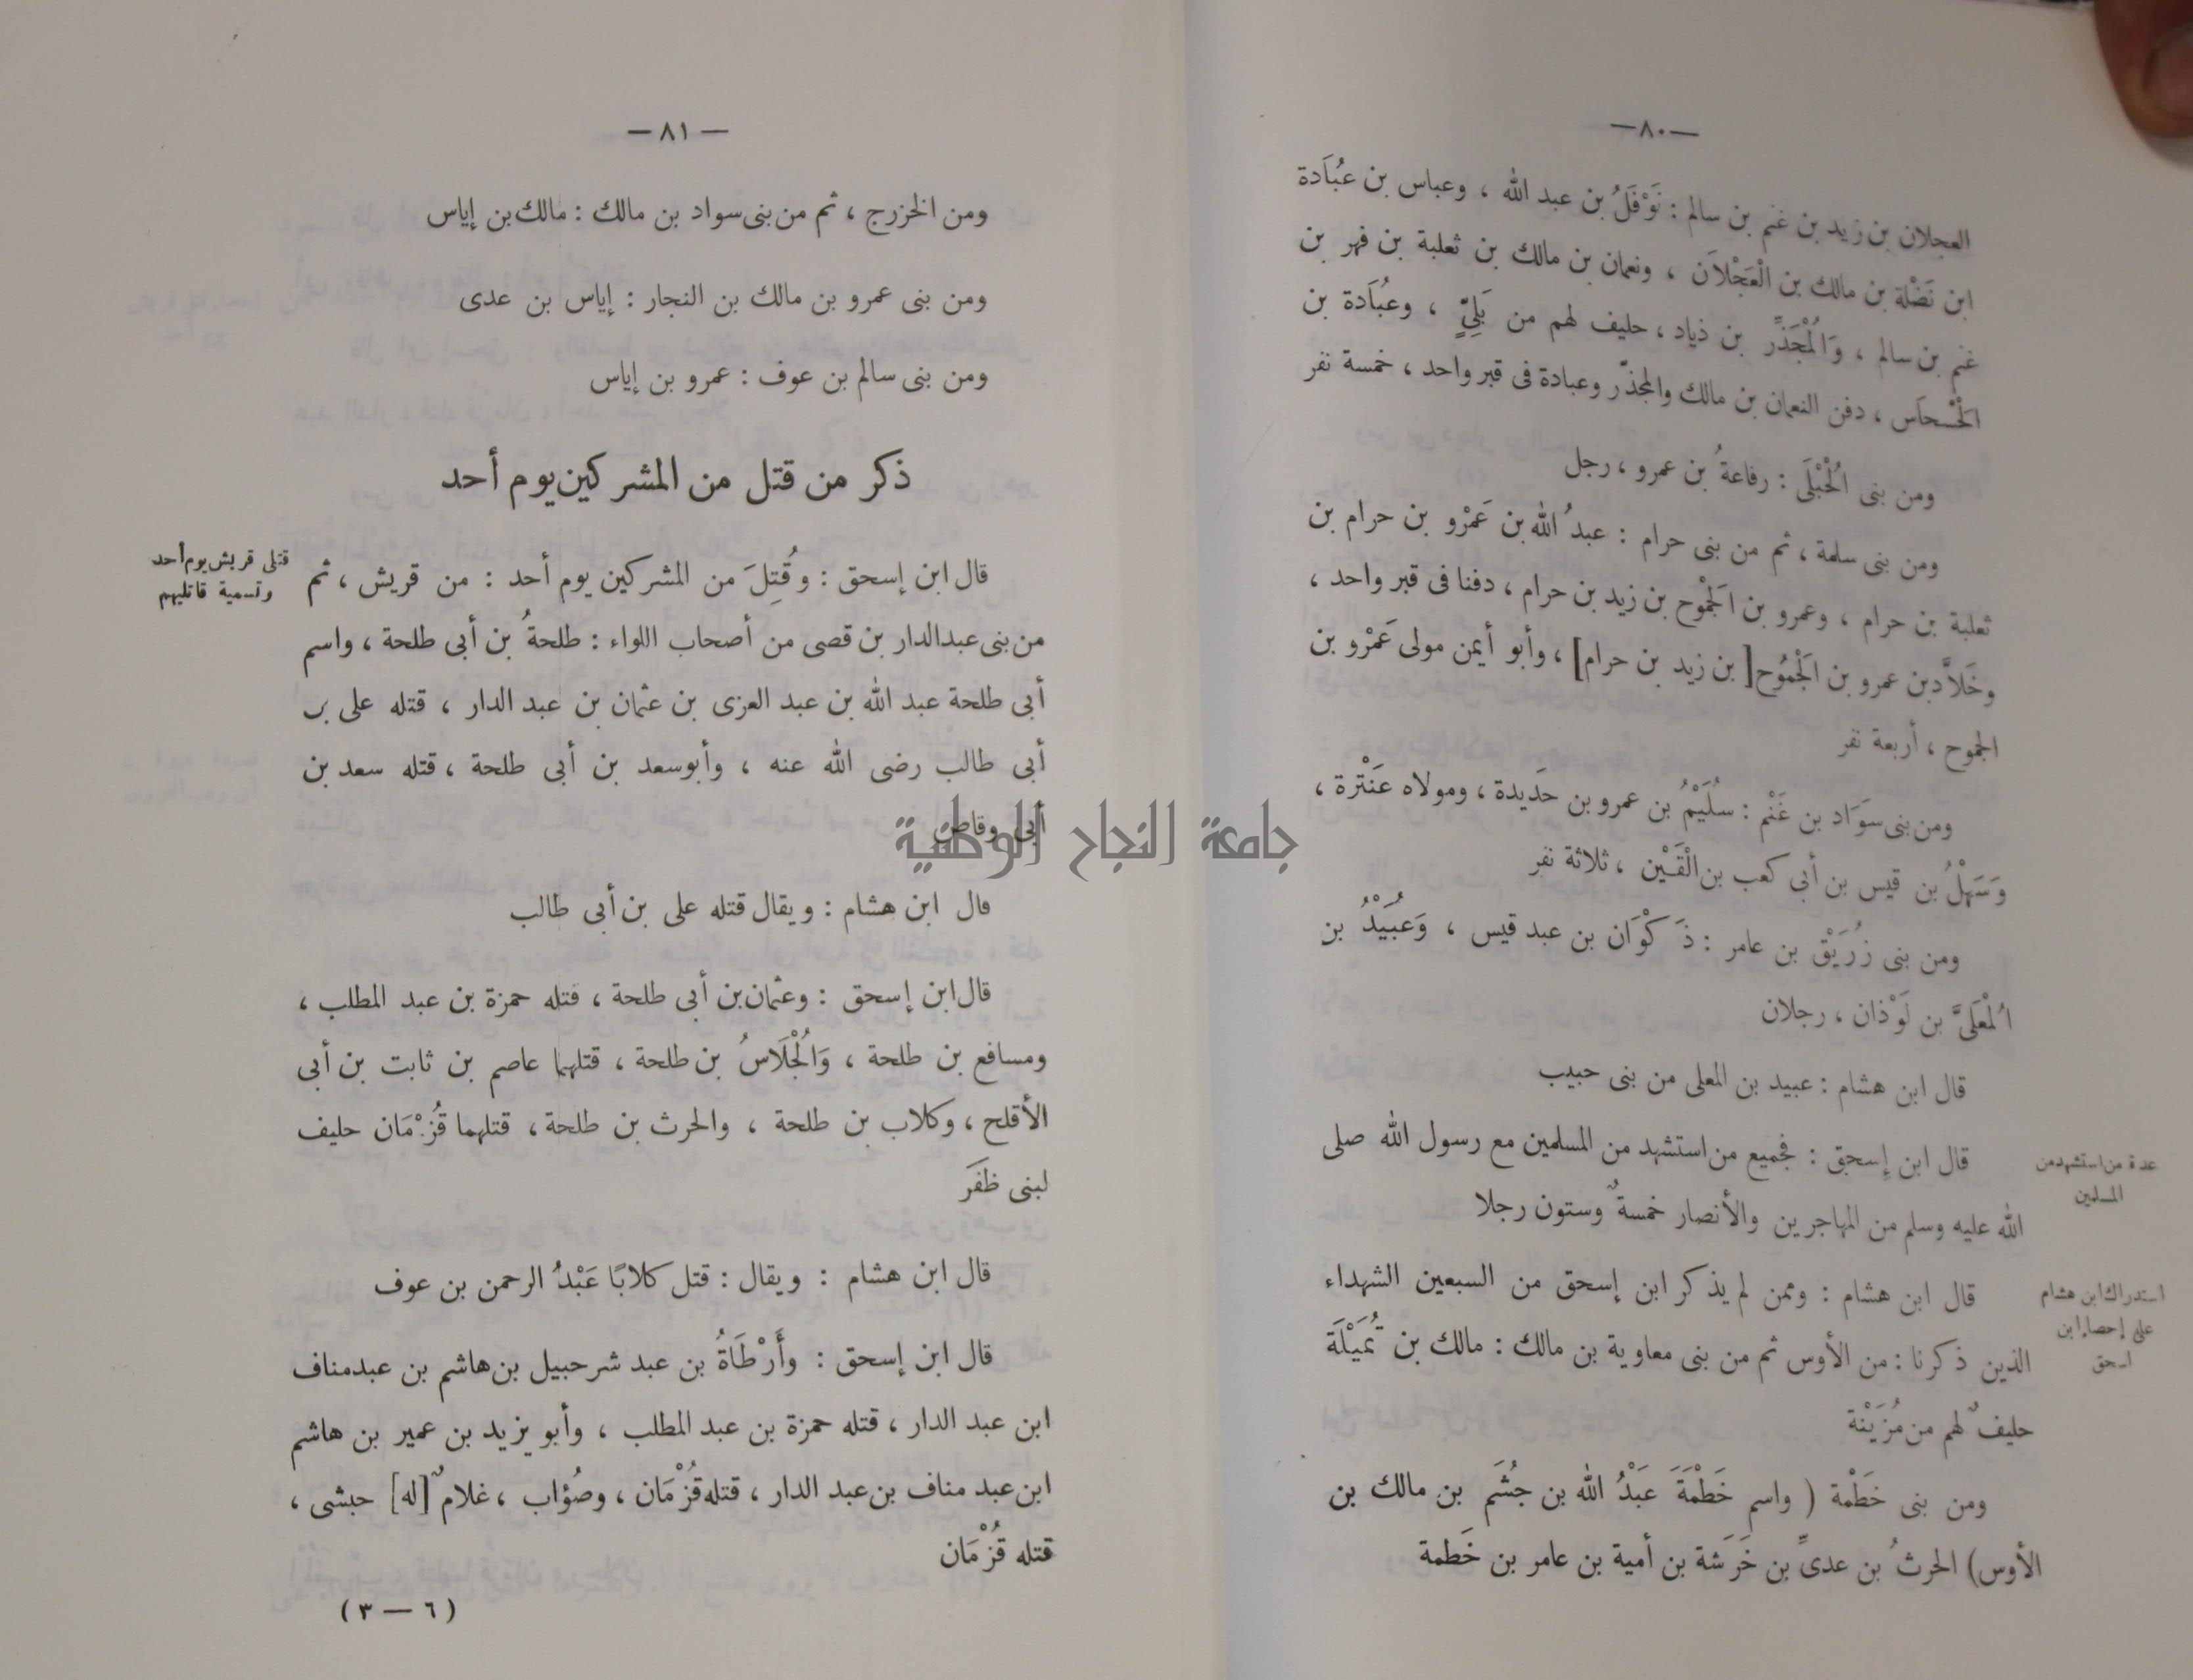 —٨٠—
العجلان بن زيد بن غنم بن سالم : نَوْفَلُ بن عبد الله ، وعباس بن عُبَادة
ابن نَضْلة بن مالك بن الْعَجْلاَن ، ونعمان بن مالك بن ثعلبة بن فهر بن
غنم بن سالم ، وَالْمُجَذَّر بن ذياد ، حليف لهم من بَلِىٍّ ، وعُبَادة بن
الْحَسْحاَس ، دفن النعمان بن مالك والمجذّر وعبادة فى قبر واحد ، خمسة نفر
ومن بنى الْحُبْلَى : رفاعةُ بن عمرو ، رجل
ومن بنى سلمة ، ثم من بنى حرام : عبدُ الله بن عَمْرو بن حرام بن
ثعلبة بن حرام ، وعمرو بن الَجْموح بن زيد بن حرام ، دفنا فى قبر واحد ،
وخَلاَّد بن عمرو بن الَجْمُوح [بن زيد بن حرام] ، وأبو أيمن مولى عَمْرو بن
الجموح ، أربعة نفر
ومن بنى سَوَاد بن غَنْم : سُلَيْمُ بن عمرو بن حَديدة ، ومولاه عَنْترة ،
وَسَهْلُ بن قيس بن أبى كعب بن الْقَيْن ، ثلاثة نفر
ومن بنى زُرَيْق بن عامر : ذَكْوَان بن عبد قيس ، وَعُبَيْدُ بن
الْمُعَلَىَّ بن لَوْذان ، رجلان
قال ابن هشام : عبيد بن المعلى من بنى حبيب
عدة من استشهد من
المسلمين
قال ابن إسحق : فجميع من استشهد من المسلمين مع رسول الله صلى
الله عليه وسلم من المهاجرين والأنصار خمسةٌ وستون رجلا
استدراك ابن هشام
على إحصاء ابن
اسحق
قال ابن هشام : وممن لم يذكر ابن إسحق من السبعين الشهداء
الذين ذكرنا : من الأوس ثم من بنى معاوية بن مالك : مالك بن نُمَيْلَة
حليفٌ لهم من مُزَيْنة
ومن بنى خَطْمة ( واسم خَطْمَةَ عَبْدُ الله بن جُشَم بن مالك بن
الأوس) الحرثُ بن عدىِّ بن خَرَشة بن أمية بن عامر بن خَطمة
— ٨١ —
ومن الخزرج ، ثم من بنى سواد بن مالك : مالك بن إياس
ومن بنى عمرو بن مالك بن النجار : إياس بن عدى
ومن بنى سالم بن عوف : عمرو بن إياس
ذكر من قتل من المشركين يوم أحد
قتلى قريش يوم أحد
وتسمية قاتليهم
قال ابن إسحق : وقُتِلَ من المشركين يوم أحد : من قريش ، ثم
من بنى عبد الدار بن قصى من أصحاب اللواء : طلحةُ بن أبى طلحة ، واسم
أبى طلحة عبد الله بن عبد العزى بن عثمان بن عبد الدار ، قتله على بن
أبى طالب رضى الله عنه ، وأبو سعد بن أبى طلحة ، قتله سعد بن
أبى وقاص
قال ابن هشام : ويقال قتله على بن أبى طالب
قال ابن إسحق : وعثمان بن أبى طلحة ، قتله حمزة بن عبد المطلب ،
ومسافع بن طلحة ، وَالْجُلَاسُ بن طلحة ، قتلهما عاصم بن ثابت بن أبى
الأقلح ، وكلاب بن طلحة ، والحرث بن طلحة ، قتلهما قُزْمَان حليف
لبنى ظَفَرَ
قال ابن هشام : ويقال : قتل كلابًا عَبْدُ الرحمن بن عوف
قال ابن إسحق : وأَرْطَاةُ بن عبد شرحبيل بن هاشم بن عبد مناف
ابن عبد الدار ، قتله حمزة بن عبد المطلب ، وأبو يزيد بن عمير بن هاشم
ابن عبد مناف بن عبد الدار ، قتله قُزْمَان ، وصُؤاب ، غلامٌ [له] حبشى ،
قتله قُزْمَان
( ٦ — ٣ )
جامعة النجاح الوطنية